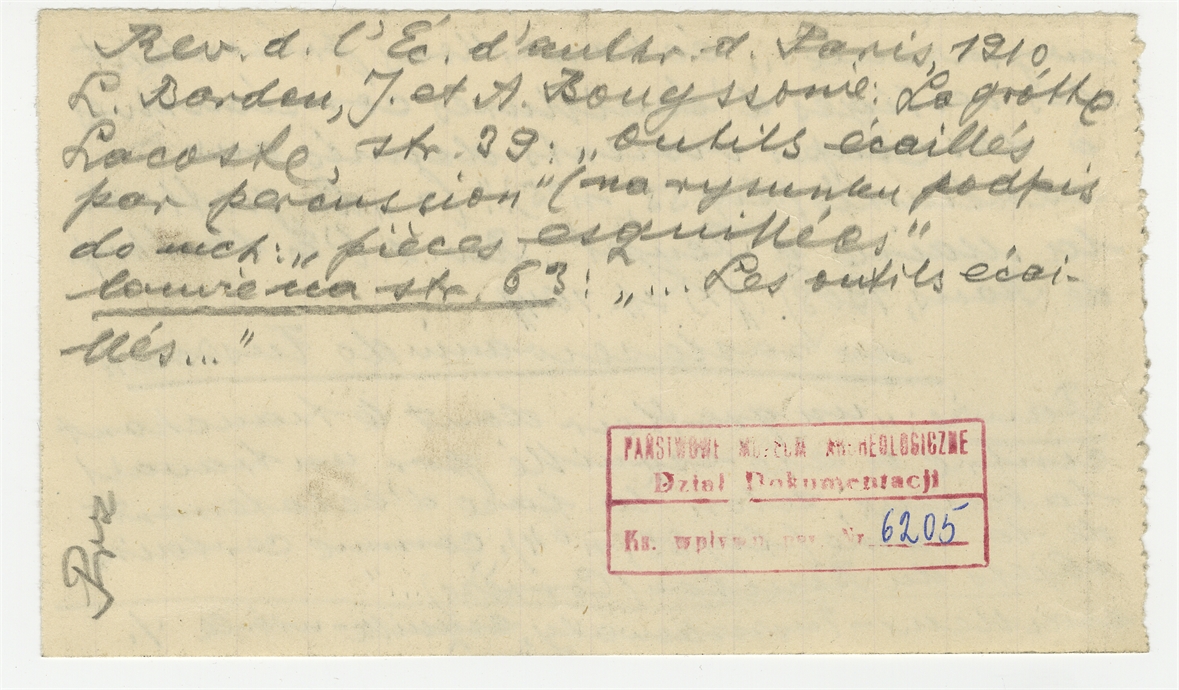 Rev. d. l'Éc. d'anthr. d. Paris, 1910
L. Bardon, J. et A. Bouyssonie: La grotte
Lacoste, str. 39: „outils écaillés
par percussion" (na rysunku podpis
do nich: „pièces esquillées"
tamże na str. 63: „... Les outils écai-
llés..."
PAŃSTWOWE MUZEUM ARCHEOLOGICZNE
Dział Dokumentacji
Ks. wpływów Nr. 6205